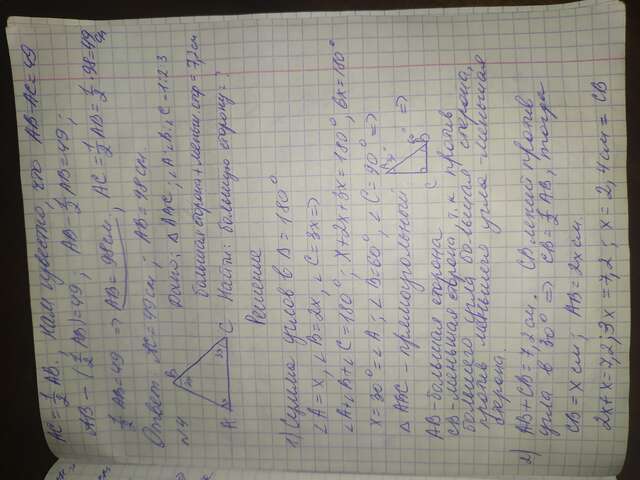 AC = 1/2 AB. Нам известно, что AB - AC = 49
AB - (1/2 AB) = 49; AB - 1/2 AB = 49;
1/2 AB = 49 => AB = 98 см, AC = 1/2 AB = 1/2 · 98 = 49 см
Ответ: AC = 49 см; AB = 98 см.
№4
Дано: △ABC; ∠A:∠B:∠C = 1:2:3
большая сторона + меньш стор = 7,2 см
Найти: большую сторону = ?
B
2x
A
x
3x
C
Решение
1) Сумма углов в △ = 180°
∠A = x, ∠B = 2x, ∠C = 3x =>
∠A + ∠B + ∠C = 180°; x + 2x + 3x = 180°, 6x = 180°
x = 30° = ∠A; ∠B = 60°, ∠C = 90° =>
△ABC - прямоугольный =>
A
C
B
AB - большая сторона
CB - меньшая сторона т.к против
большего угла большая сторона,
против меньшего угла - меньшая
сторона.
2) AB + CB = 7,2 см. CB лежит против
угла в 30° => CB = 1/2 AB, тогда
CB = x см; AB = 2x см
2x + x = 7,2; 3x = 7,2; x = 2,4 см = CB